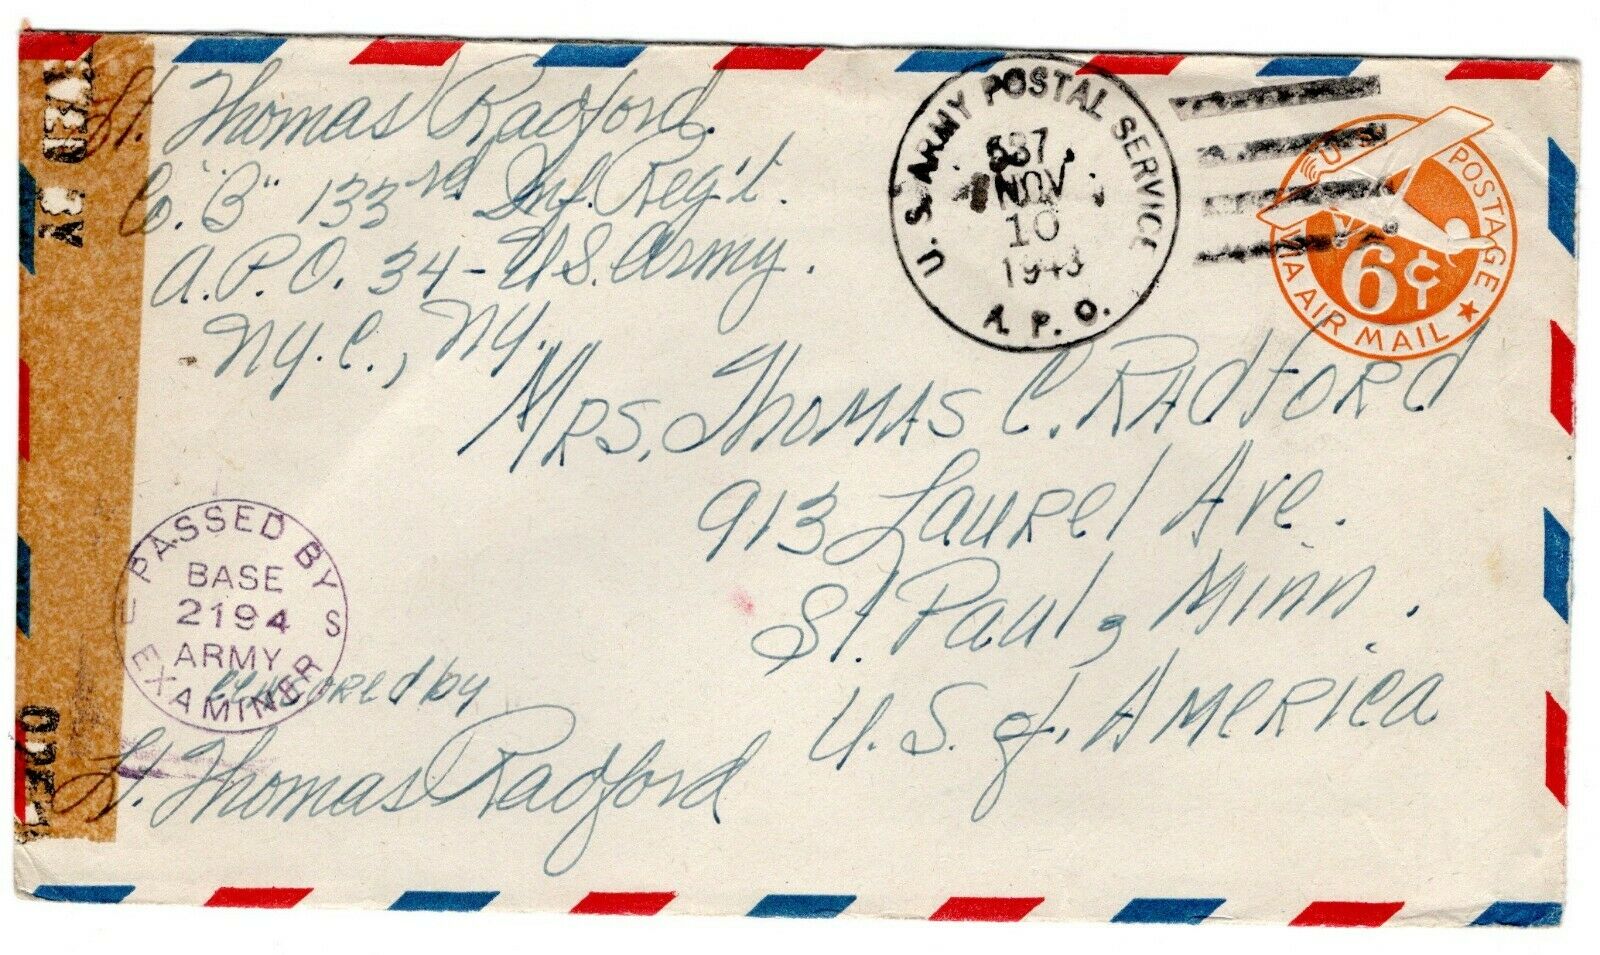 Lt. Thomas Radford.
Co. "B" 133rd Inf. Reg't.
A.P.O. 34 - U.S. Army.
N.Y.C., N.Y.
U.S. ARMY POSTAL SERVICE
NOV
10
1943
A. P. O.
U S POSTAGE
6¢
VIA AIR MAIL
MRS. Thomas C. Radford
913 Laurel Ave.
St. Paul, Minn.
U. S. of America
PASSED BY
BASE
2194
ARMY
EXAMINER
U S
Censored by
Lt. Thomas Radford
OPENED BY